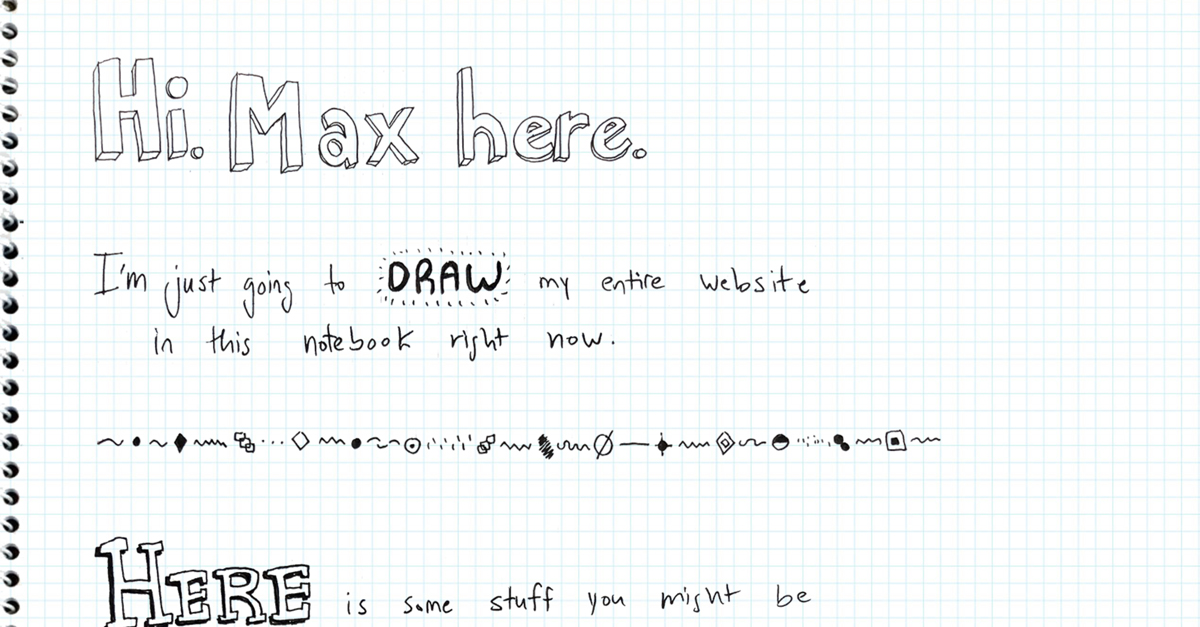 Hi. Max here.
I'm just going to DRAW my entire website
in this notebook right now.
HERE is some stuff you might be